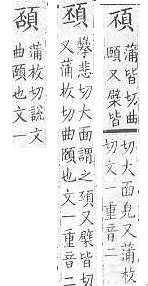 蒲皆切曲
頤又蘗皆
切大面皃又蒲枚
切文一重音二
攀悲切大面謂之又蘗皆切
又蒲枚切曲頤也文一重音二
蒲枚切說文
曲頤也文一